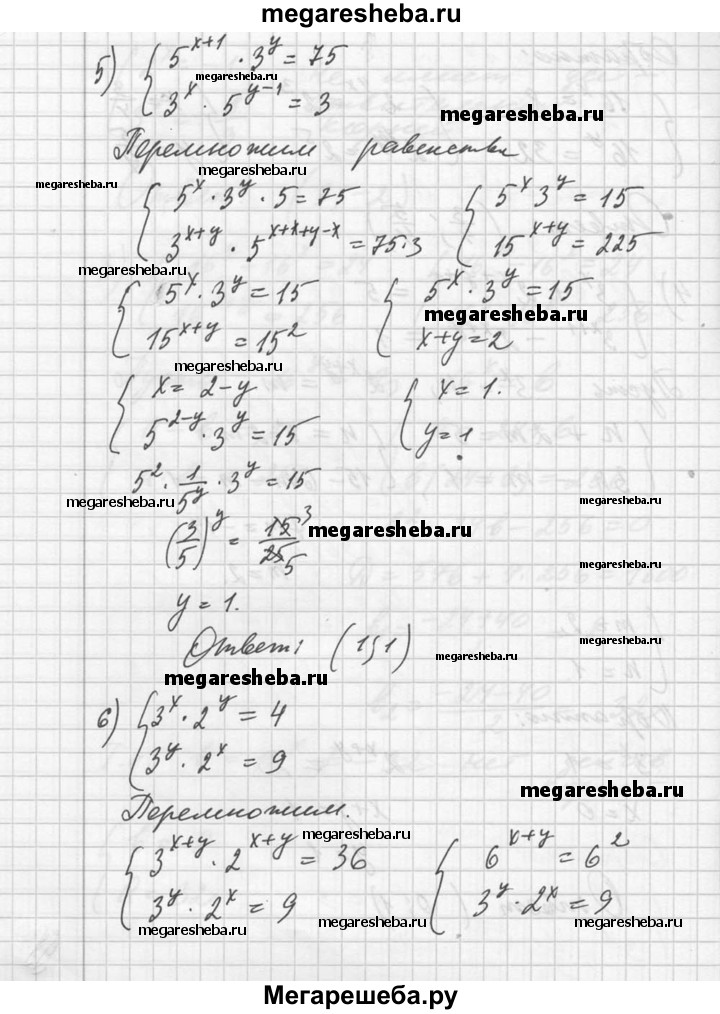 megaresheba.ru
5) { 5^{x+1} · 3^y = 75
megaresheba.ru
3^x · 5^{y-1} = 3
megaresheba.ru
Перемножим равенства
megaresheba.ru
megaresheba.ru
{ 5^x · 3^y · 5 = 75 { 5^x 3^y = 15
3^{x+y} · 5^{x+x+y-x} = 75·3 15^{x+y} = 225
megaresheba.ru
{ 5^x · 3^y = 15 { 5^x · 3^y = 15
megaresheba.ru
15^{x+y} = 15^2 x+y=2
megaresheba.ru
{ x = 2-y { x = 1.
5^{2-y} · 3^y = 15 y = 1
5^2 · 1/5^y · 3^y = 15
megaresheba.ru megaresheba.ru
(3/5)^y = 15/25 3 5
megaresheba.ru
megaresheba.ru
y = 1.
Ответ: (1;1)
megaresheba.ru
megaresheba.ru
megaresheba.ru
6) { 3^x · 2^y = 4
3^y · 2^x = 9
megaresheba.ru
Перемножим.
megaresheba.ru
{ 3^{x+y} · 2^{x+y} = 36 { 6^{x+y} = 6^2
3^y · 2^x = 9 3^y · 2^x = 9
megaresheba.ru megaresheba.ru megaresheba.ru
megaresheba.ru
Мегарешеба.ру